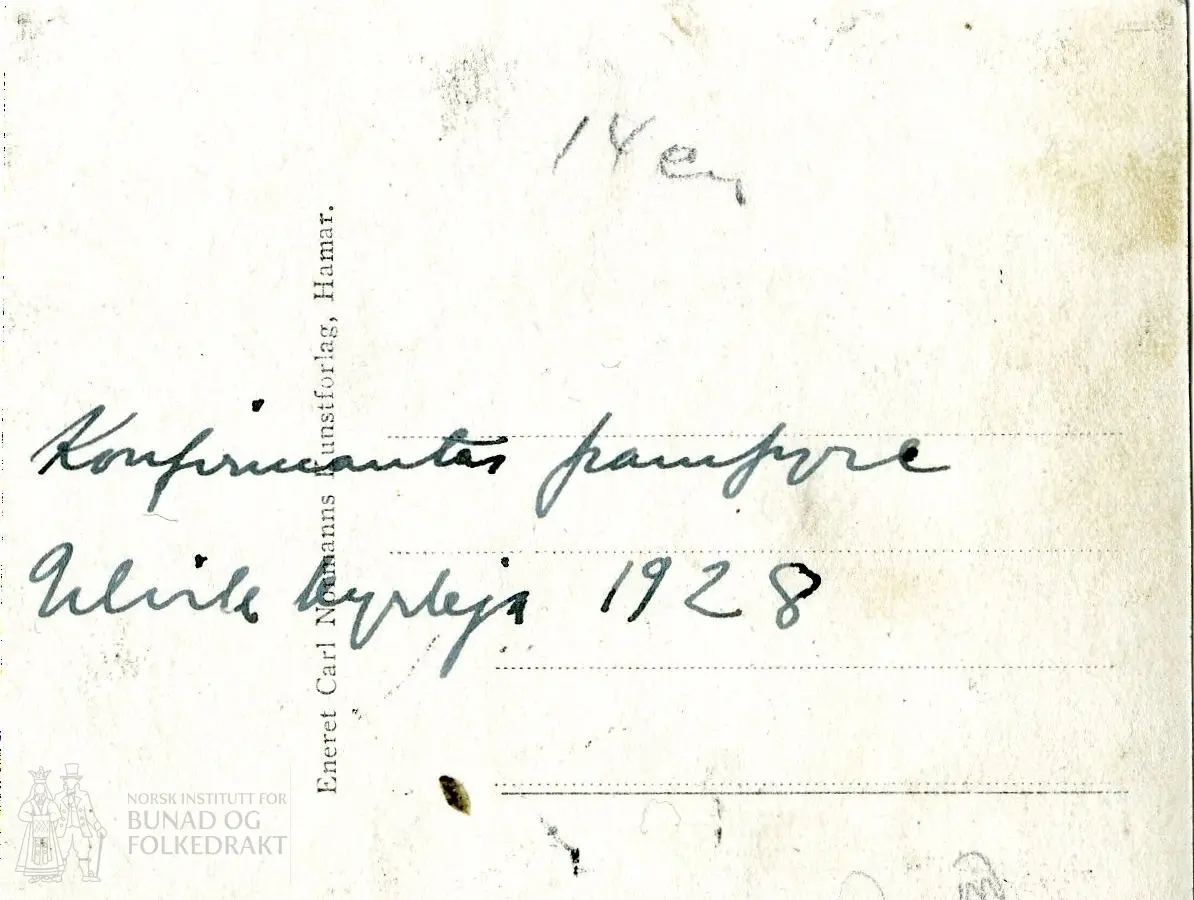 14 cm
Konfirmantar framfyre
Ulvik kyrkja 1928
Eneret Carl Normanns Kunstforlag, Hamar.
NORSK INSTITUTT FOR
BUNAD OG
FOLKEDRAKT